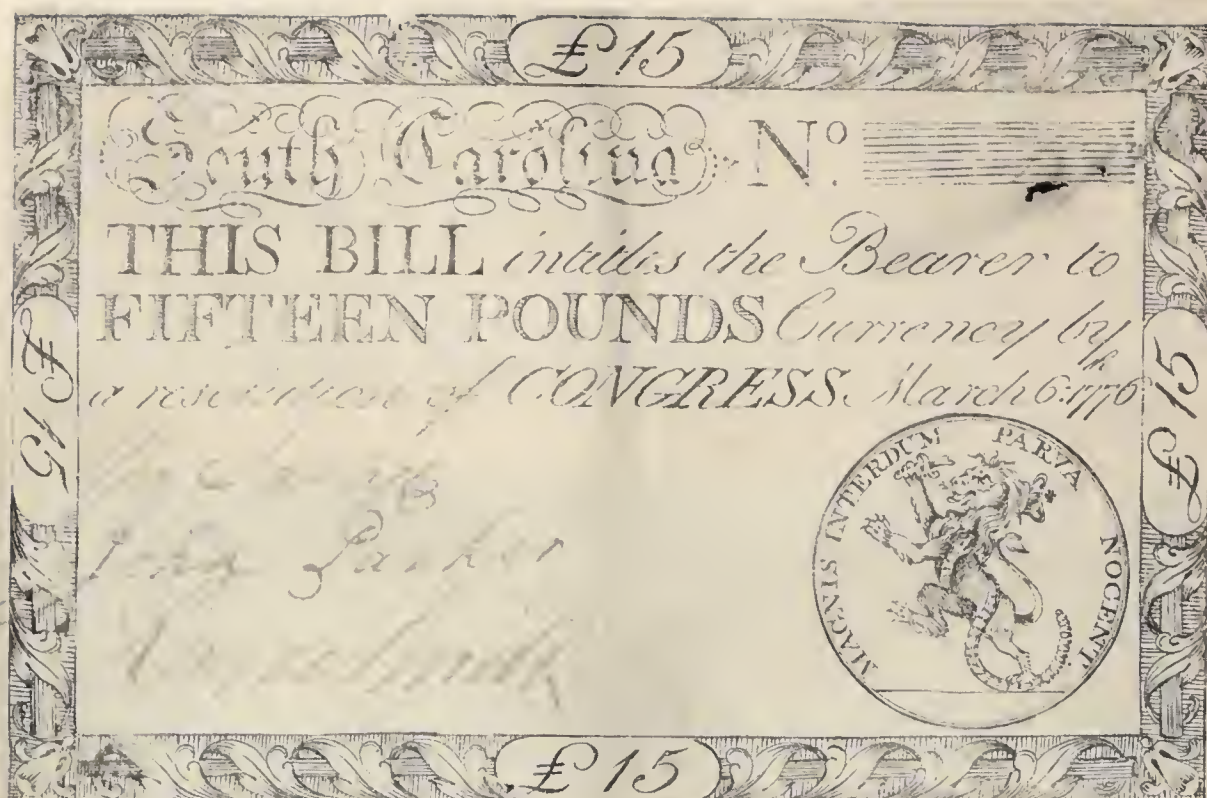 £15
South Carolina No.
THIS BILL intitles the Bearer to
FIFTEEN POUNDS Currency by
a resolution of CONGRESS March 6th 1776
£15
£15
Parker
MAGNIS INTERDUM PARVA NOCENT
£15